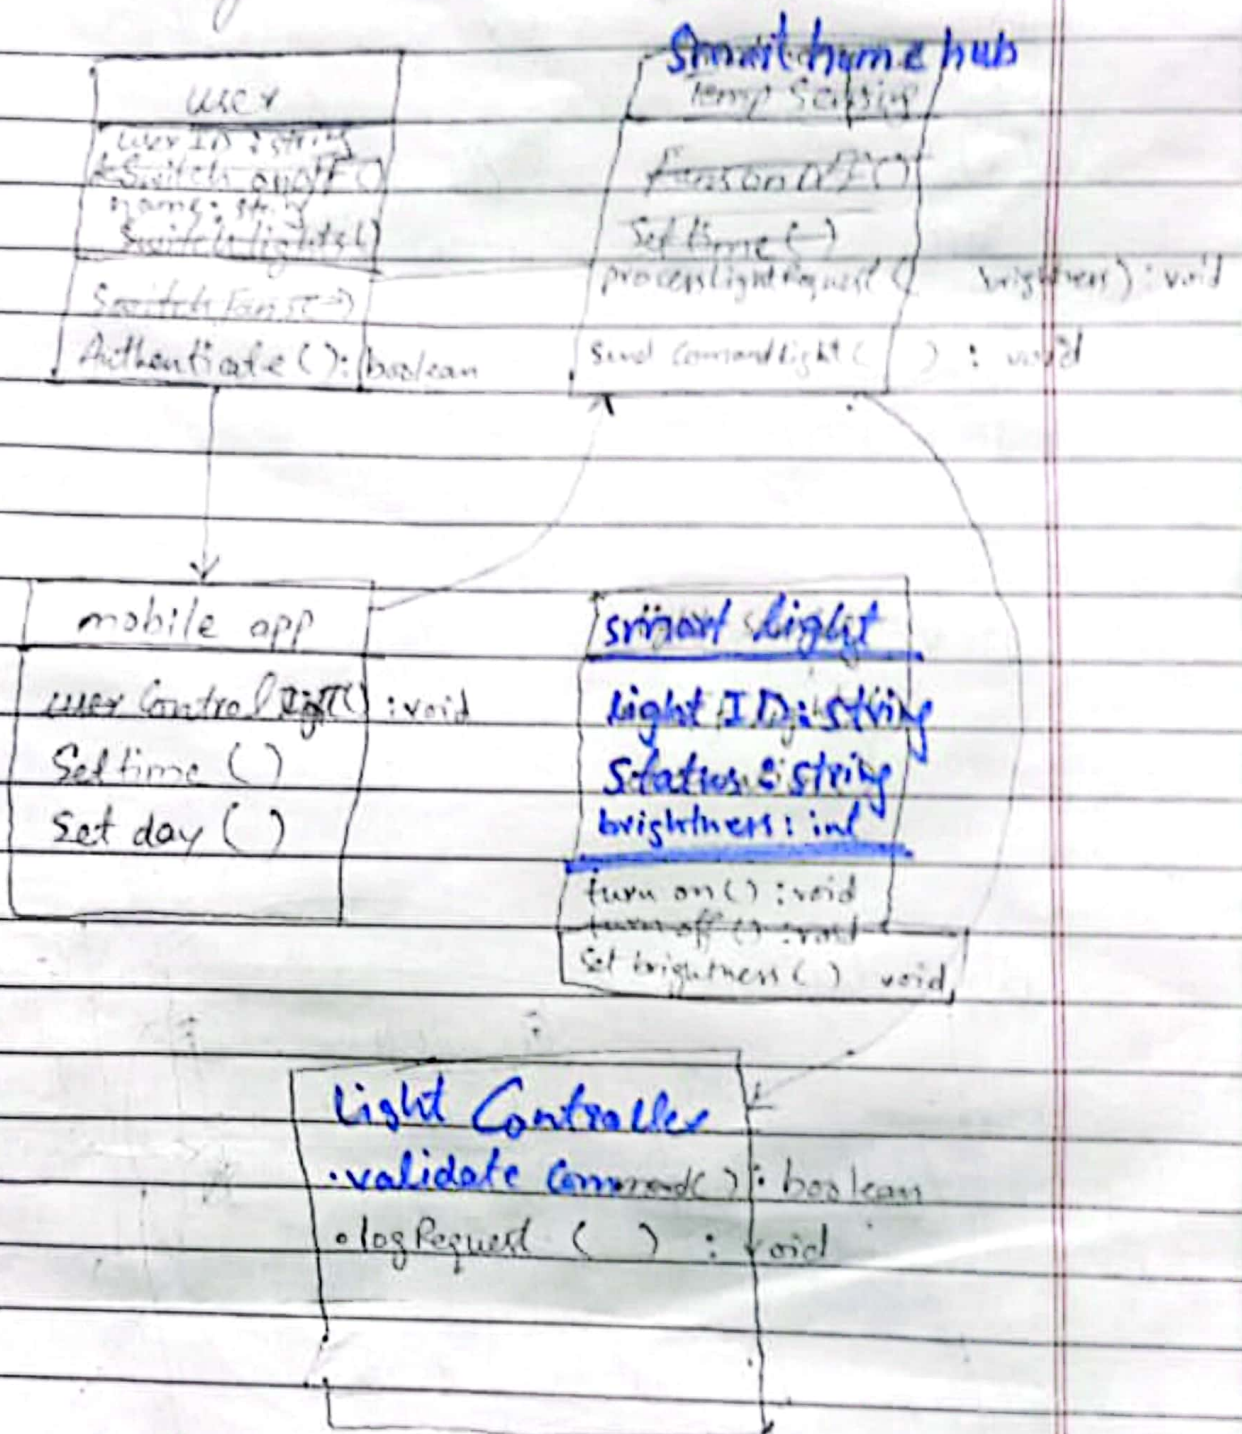 user
user ID : string
Switch on/off ()
name : string
Switch lights()
Switch Fans()
Authenticate () : boolean
Smart home hub
Temp Sensing
Fans on off ()
Set time ()
process Light Request ( brightness) : void
Send Command Light ( ) : void
mobile app
user Control light() : void
Set time ()
Set day ( )
smart light
Light ID : string
Status : string
brightness : int
turn on () : void
turn off () : void
Set brightness ( ) void
Light Controller
.validate Command( ) : boolean
.log Request ( ) : void